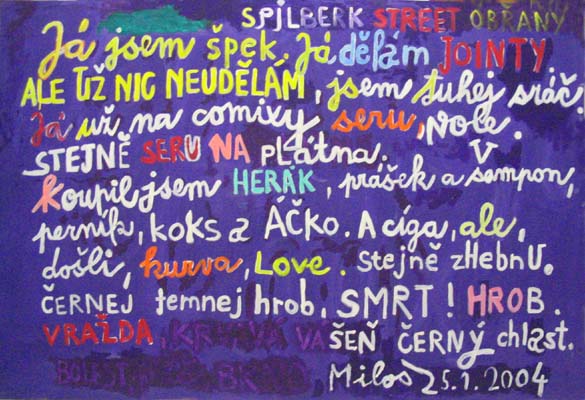 SPILBERK STREET OBRANY
Já jsem špek. Já dělám JOINTY
ALE UŽ NIC NEUDĚLÁM, jsem tuhej sráč.
Já už na comixy seru, vole.
STEJNĚ SERU NA PLÁTNA. V
Koupil jsem HERÁK, prášek a šampon,
perník, koks a ÁČKO. A cíga, ale,
došli, kurva, Love. Stejně zHebnU.
ČERNEJ temnej hrob, SMRT! HROB.
VRAŽDA, KRHAVÁ VÁ ŠEŇ ČERNÝ chlast.
BOLEST BRNO Miloš 25.1.2004